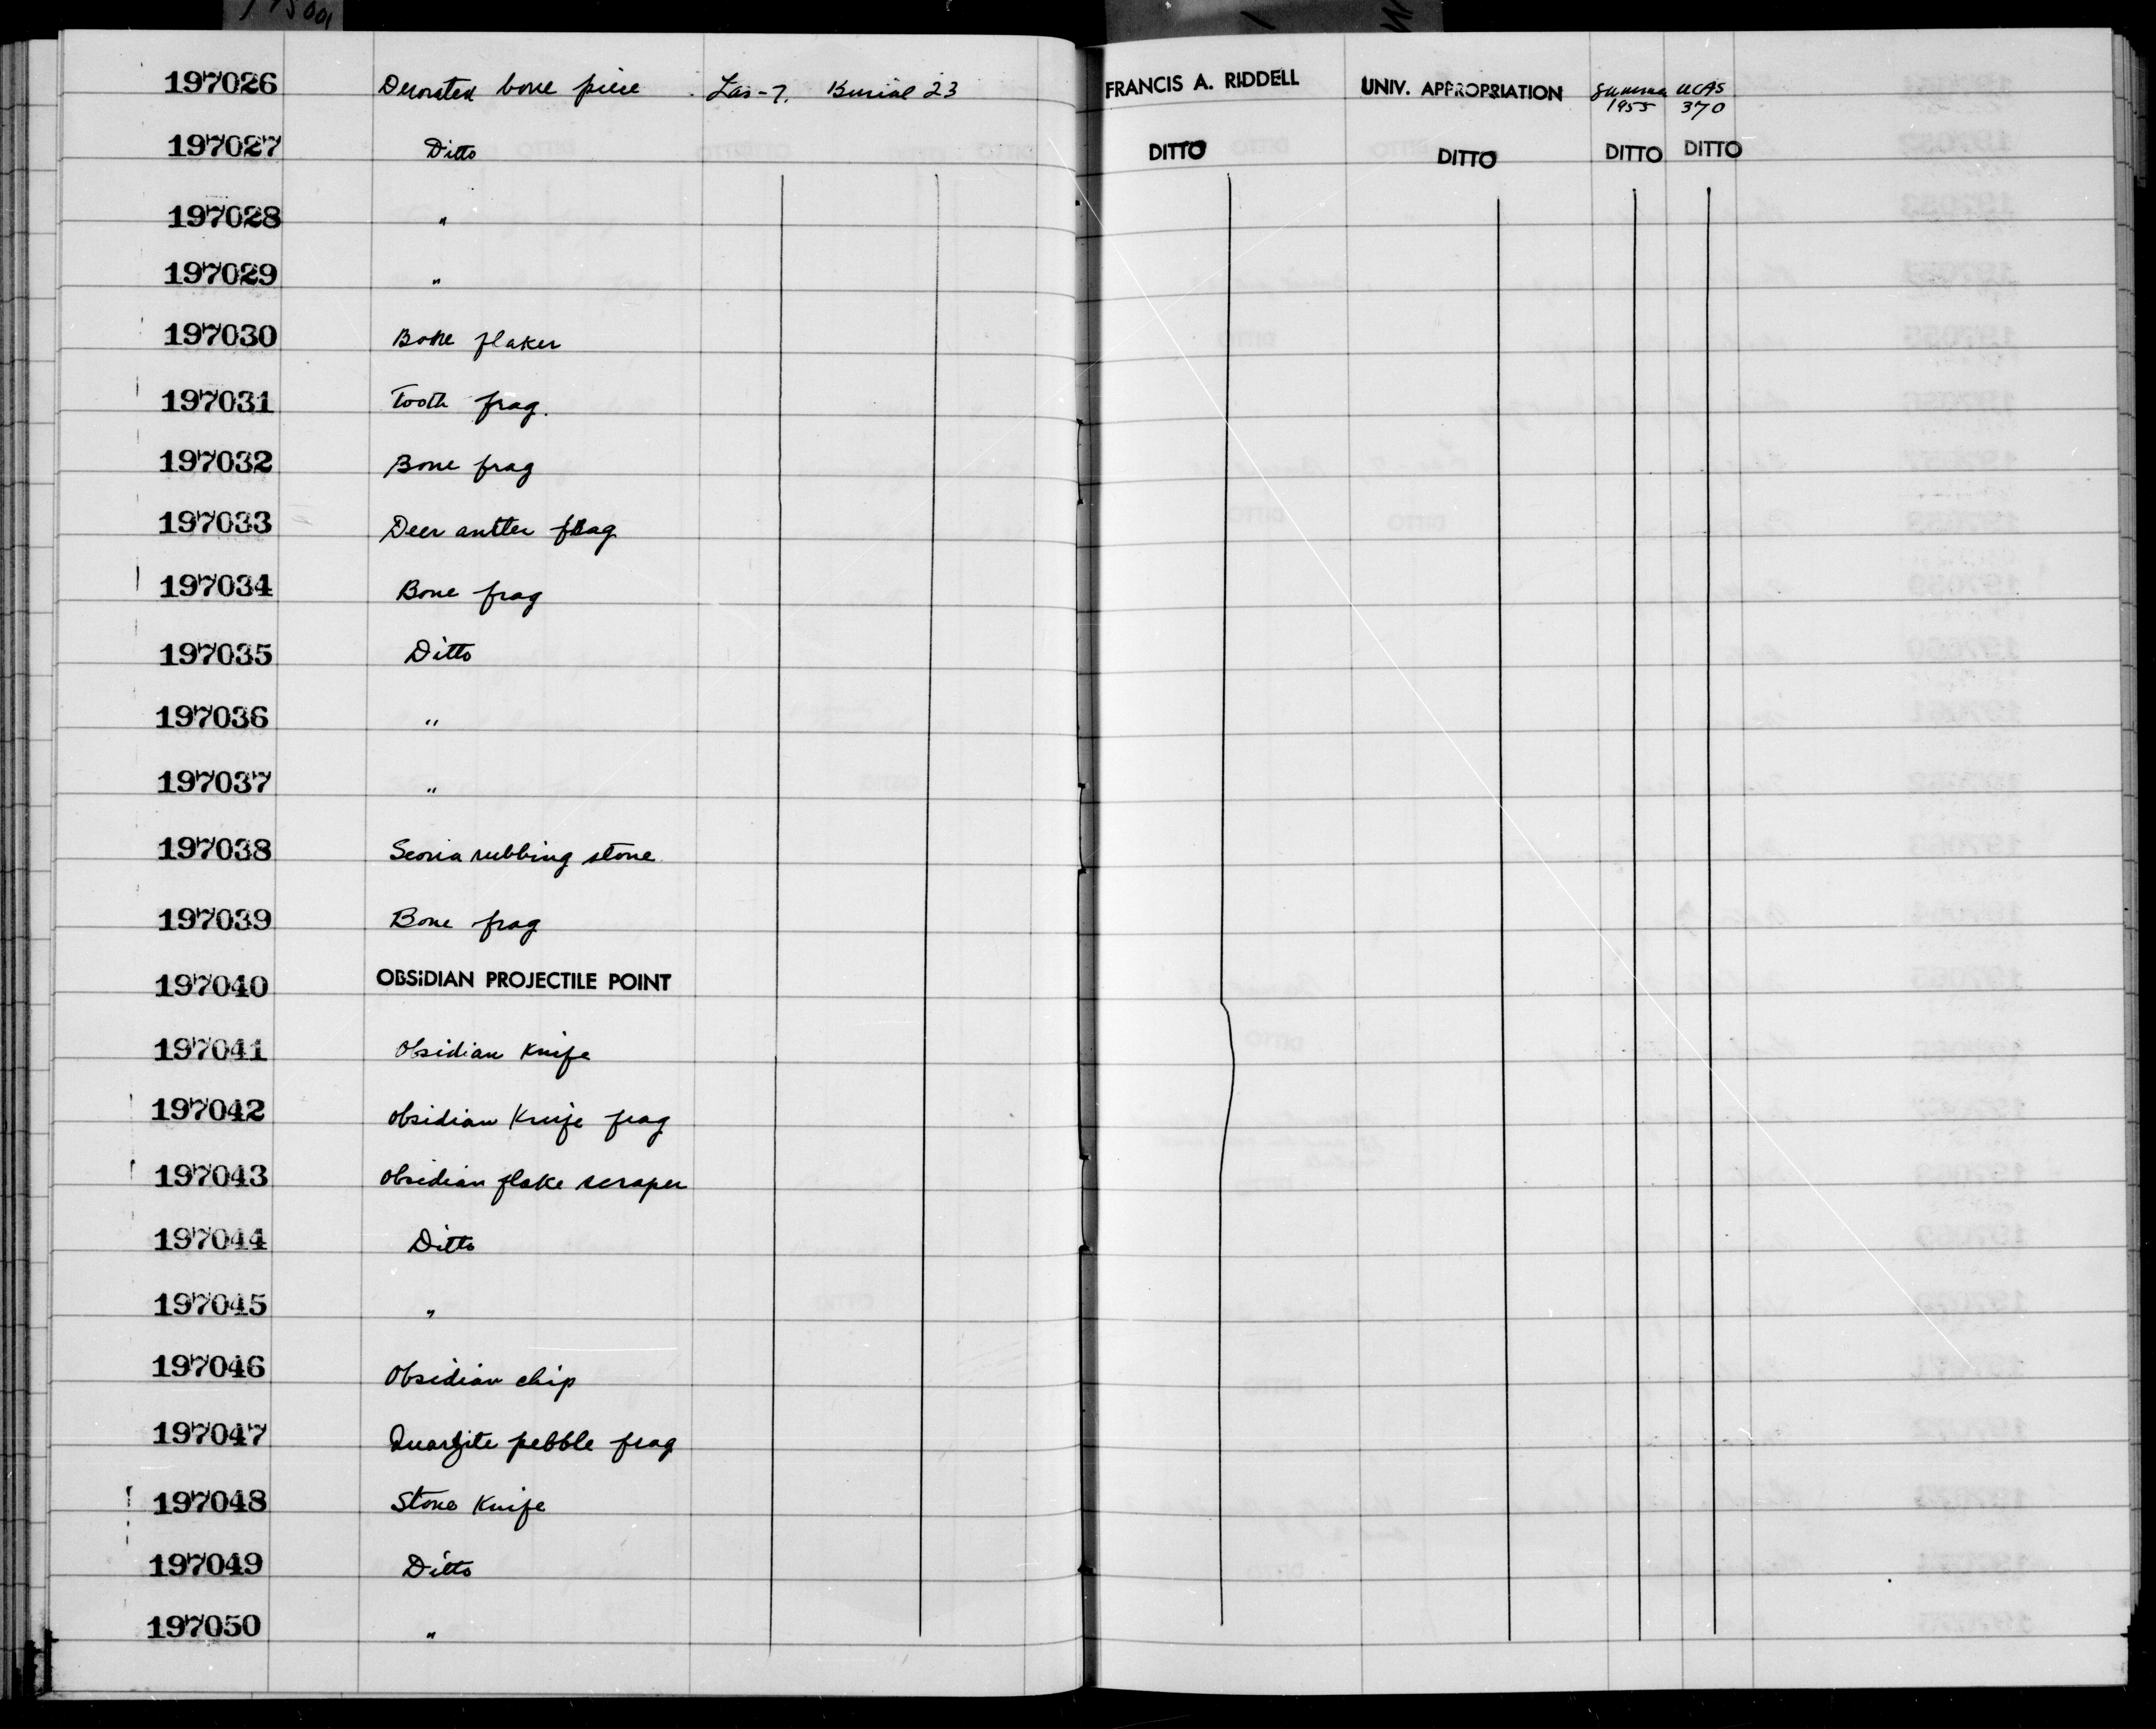 197026 Decorated bone piece Las-7. Burial 23 FRANCIS A. RIDDELL UNIV. APPROPRIATION Summer 1955 UCAS 370
197027 Ditto DITTO DITTO DITTO DITTO
197028 "
197029 "
197030 Bone flaker
197031 Tooth frag.
197032 Bone frag
197033 Deer antler frag
197034 Bone frag
197035 Ditto
197036 "
197037 "
197038 Scoria rubbing stone
197039 Bone frag
197040 OBSIDIAN PROJECTILE POINT
197041 Obsidian Knife
197042 Obsidian Knife frag
197043 Obsidian flake scraper
197044 Ditto
197045 "
197046 Obsidian chip
197047 Quartzite pebble frag
197048 Stone Knife
197049 Ditto
197050 "